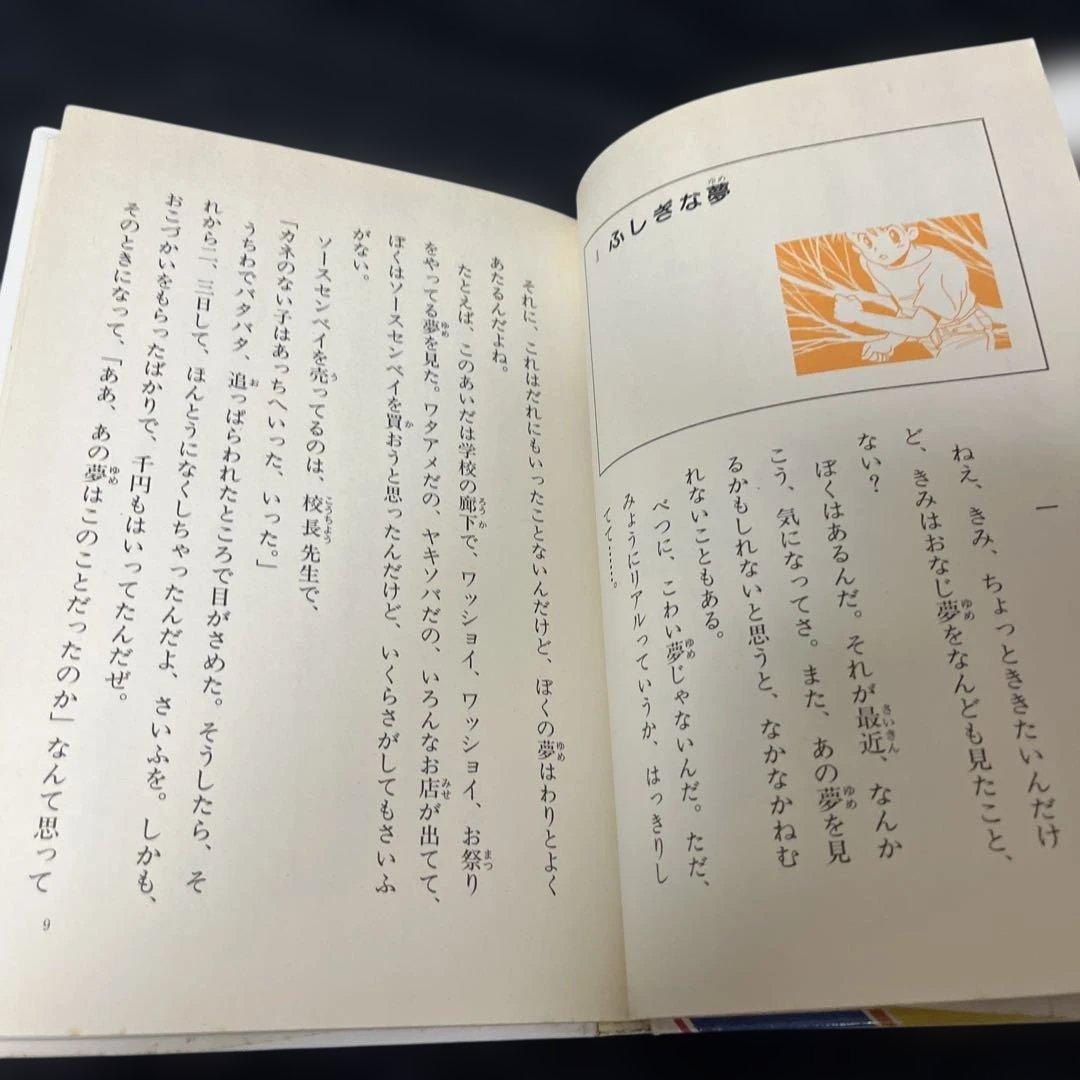 1 ふしぎな夢
ゆめ
一
ねえ、きみ、ちょっとききたいんだけ
ど、きみはおなじ夢をなんども見たこと、
ゆめ
ない？
ぼくはあるんだ。それが最近、なんか
さいきん
こう、気になってさ。また、あの夢を見
ゆめ
るかもしれないと思うと、なかなかねむ
れないこともある。
べつに、こわい夢じゃないんだ。ただ、
ゆめ
みょうにリアルっていうか、はっきりし
てて……。
それに、これはだれにもいったことないんだけど、ぼくの夢はわりとよく
ゆめ
あたるんだよね。
たとえば、このあいだは学校の廊下で、ワッショイ、ワッショイ、お祭り
ろうか
まつ
をやってる夢を見た。ワタアメだの、ヤキソバだの、いろんなお店が出てて、
ゆめ
みせ
ぼくはソースセンベイを買おうと思ったんだけど、いくらさがしてもさいふ
か
がない。
ソースセンベイを売ってるのは、校長先生で、
う
こうちょう
「カネのない子はあっちへいった、いった。」
うちわでバタバタ、追っぱらわれたところで目がさめた。そうしたら、そ
お
れから二、三日して、ほんとうになくしちゃったんだよ、さいふを。しかも、
おこづかいをもらったばかりで、千円もはいってたんだぜ。
そのときになって、「ああ、あの夢はこのことだったのか」なんて思って
ゆめ
9